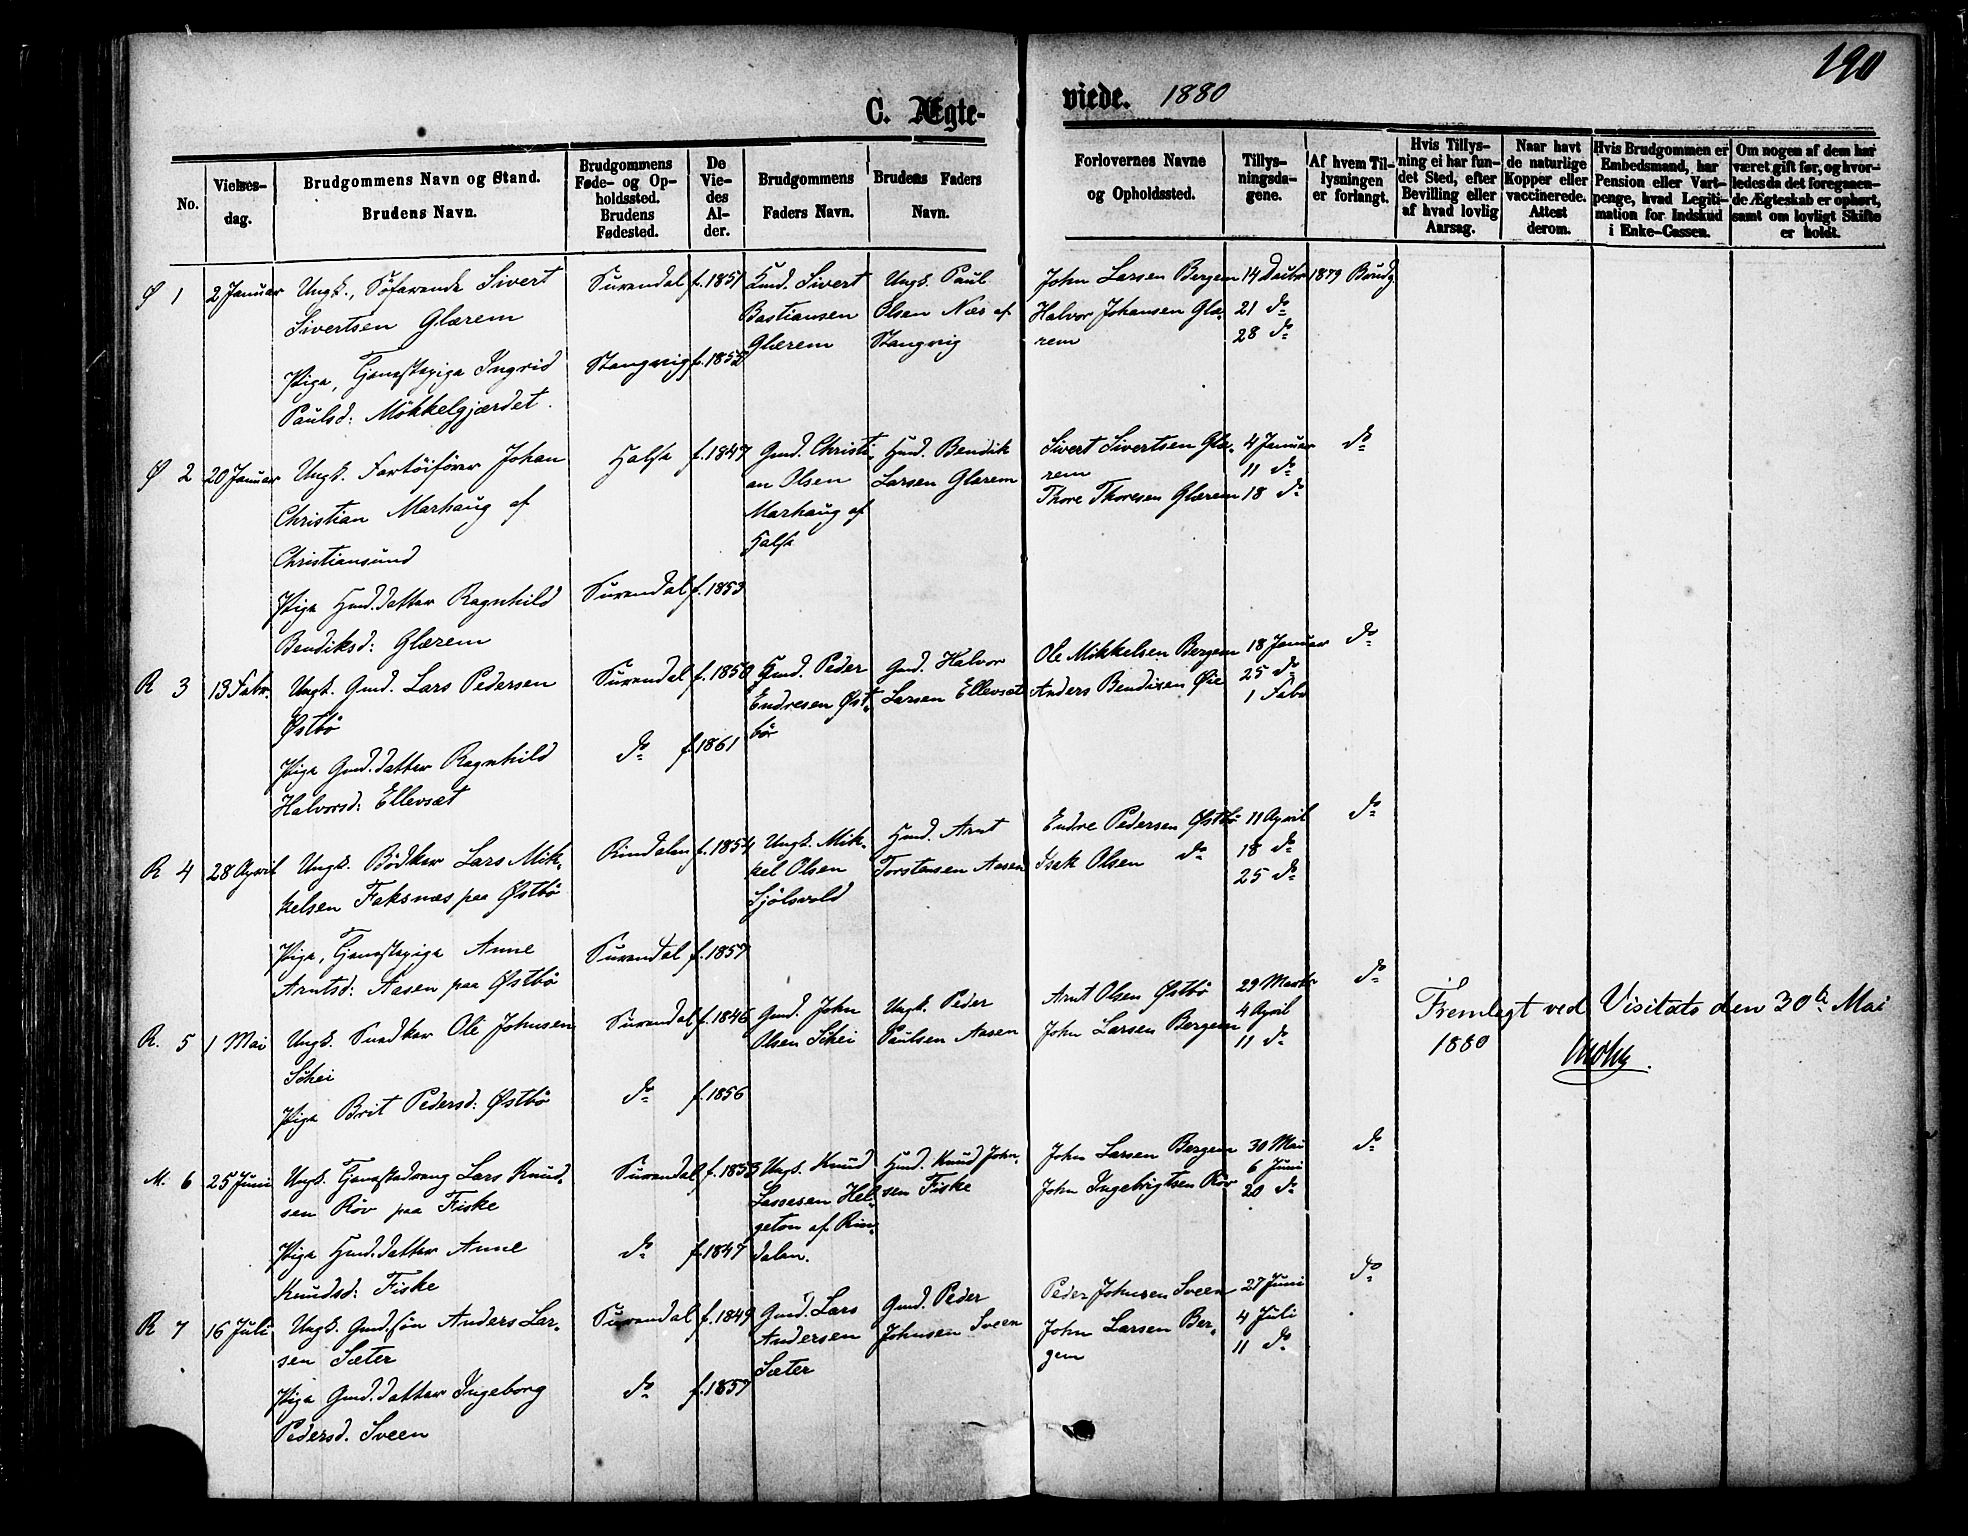 190
C. Ægte-
viede. 1880
No.
Vielses-
dag.
Brudgommens Navn og Stand.
Brudens Navn.
Brudgommens
Føde- og Op-
holdssted.
Brudens
Fødested.
De
Vie-
des
Al-
der.
Brudgommens
Faders Navn.
Brudens Faders
Navn.
Forlovernes Navne
og Opholdssted.
Tillys-
ningsda-
gene.
Af hvem Til-
lysningen
er forlangt.
Hvis Tillys-
ning ei har fun-
det Sted, efter
Bevilling eller
af hvad lovlig
Aarsag.
Naar havt
de naturlige
Kopper eller
vaccinerede.
Attest
derom.
Hvis Brudgommen er
Embedsmand, har
Pension eller Vart-
penge, hvad Legiti-
mation for Indskud
i Enke-Cassen.
Om nogen af dem har
været gift før, og hvor-
ledes da det foregaaen-
de Ægteskab er ophørt,
samt om lovligt Skifte
er holdt.
Ø 1 2 Januar
Ungk., Söfarende Sivert
Sivertsen Glærem
Surendal f. 1851
Pige, Tjenestepige Ingrid
Paulsd: Mökkelgjærdet.
Stangvig f. 1852
Hmd. Sivert
Bastiansen
Glærem
Ungk. Paul
Olsen Næs af
Stangvig
John Larsen Bergem
Halvor Johansen Glæ-
rem
14 Decbr 1879
21 do
28 do
Brudg.
Ø 2 20 Januar
Ungk. Fartöiförer Johan
Christian Marhaug af
Christiansund
Halse f. 1847
Pige Hmd.datter Ragnhild
Bendiksd: Glærem
Surendal f. 1853
Gmd. Christi-
an Olsen
Marhaug af
Halse
Hmd. Bendik
Larsen Glærem
Sivert Sivertsen Glæ-
rem
Thore Thoresen Glærem
4 Januar
11 do
18 do
do
R 3 13 Febr.
Ungk. Gmd. Lars Pedersen
Østbö
Surendal f. 1850
Pige Gmd.datter Ragnhild
Halvorsd: Ellevsæt
do f. 1861
Gmd. Peder
Endresen Øst-
bö
Gmd. Halvor
Larsen Ellevsæt
Ole Mikkelsen Bergem
Anders Bendixen Øie
18 Januar
25 do
1 Febr
do
R 4 28 April
Ungk. Bödker Lars Mik-
kelsen Faksnæs paa Østbö
Rindalen f. 1854
Pige, Tjenestepige Anne
Arntsd: Aasen paa Østbö
Surendal f. 1857
Ungk. Mik-
kel Olsen
Sjölsvold
Hmd. Arnt
Torstensen Aasen
Endre Pedersen Østbö
Isak Olsen do
11 April
18 do
25 do
do
R. 5 1 Mai
Ungk. Snedker Ole Johnsen
Schei
Surendal f. 1846
Pige Brit Pedersd: Østbö
do f. 1856
Gmd. John
Olsen Schei
Ungk. Peder
Paulsen Aasen
Arnt Olsen Østbö
John Larsen Bergem
29 Marts
4 April
11 do
do
Fremlagt ved Visitats den 30te Mai
1880
M. 6 25 Juni
Ungk. Tjenestedreng Lars Knud-
sen Röv paa Fiske
Surendal f. 1853
Pige Hmd.datter Anne
Knudsd: Fiske
do f. 1847
Ungk. Knud
Lassesen Hel-
geton af Rin-
dalen.
Hmd. Knud John-
sen Fiske
John Larsen Bergem
John Ingebrigtsen Röv
30 Mai
6 Juni
20 do
do
R 7 16 Juli
Ungk. Gmd.sön Anders Lar-
sen Sæter
Surendal f. 1849
Pige Gmd.datter Ingeborg
Pedersd. Sveen
do f. 1857
Gmd. Lars
Andersen
Sæter
Gmd. Peder
Johnsen Sveen
Peder Johnsen Sveen
John Larsen Ber-
gem
27 Juni
4 Juli
11 do
do